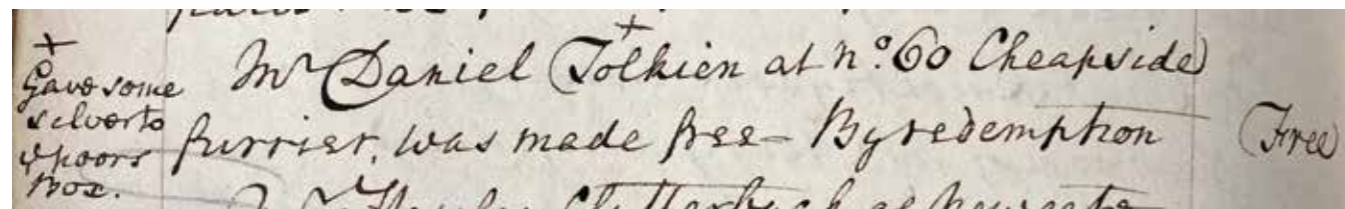 +
Gave some
silver to
ye poors
Box.
+
Mr Daniel Tolkien at No. 60 Cheapside
furrier, was made free - By redemption
Free
Clutterbuck